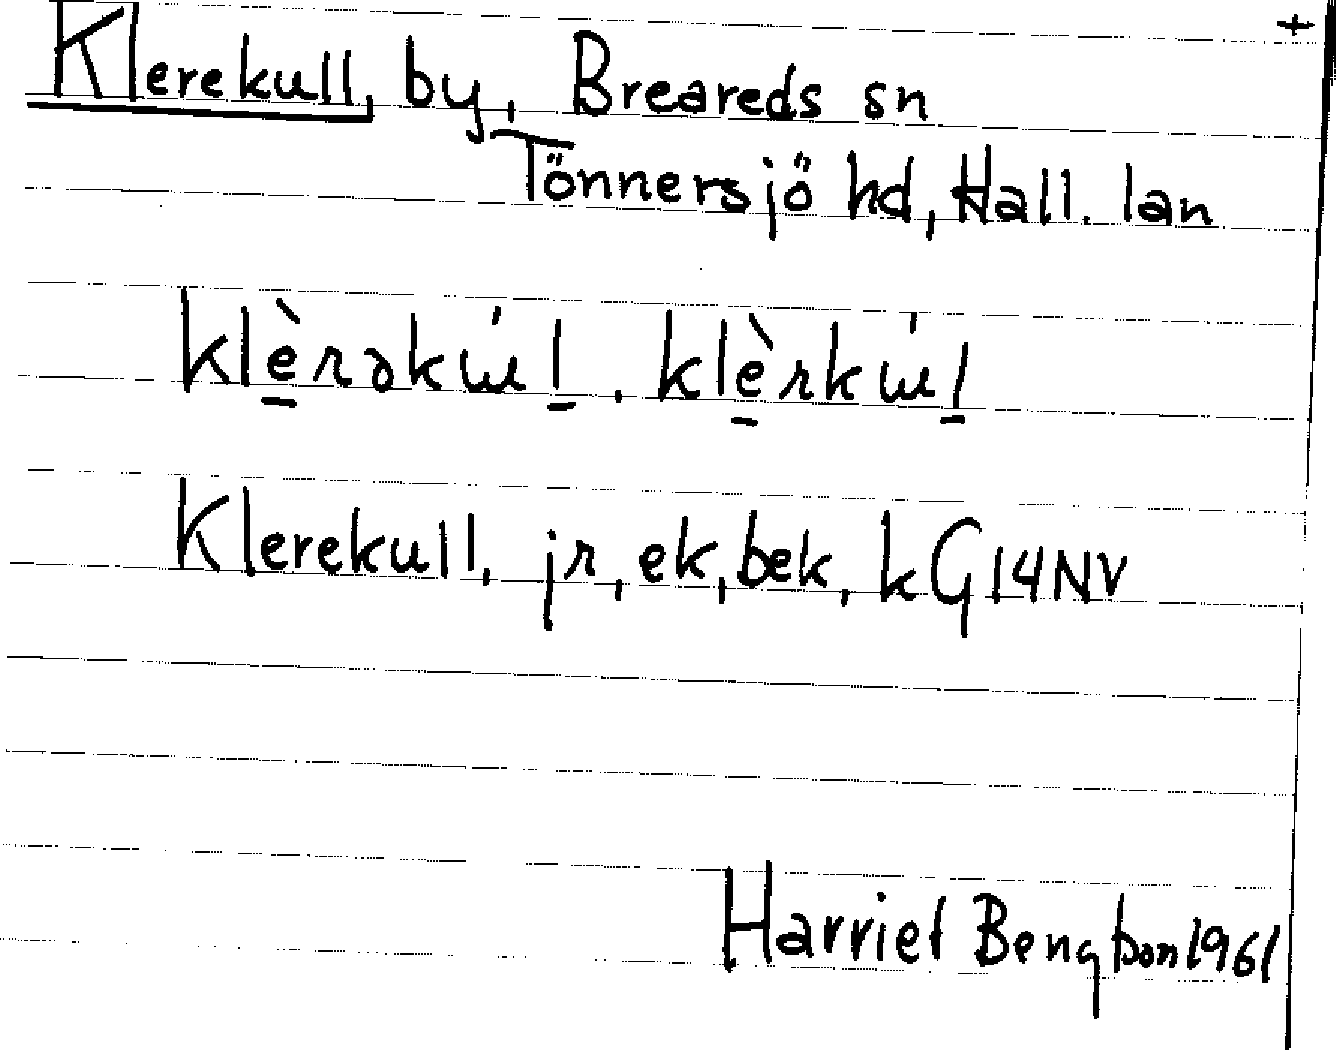 +
Klerekull, by, Breareds sn
Tönnersjö hd, Hall. lan
Klerekull, jr, ek, bek, kG14NV
Harriet Bengtson 1961